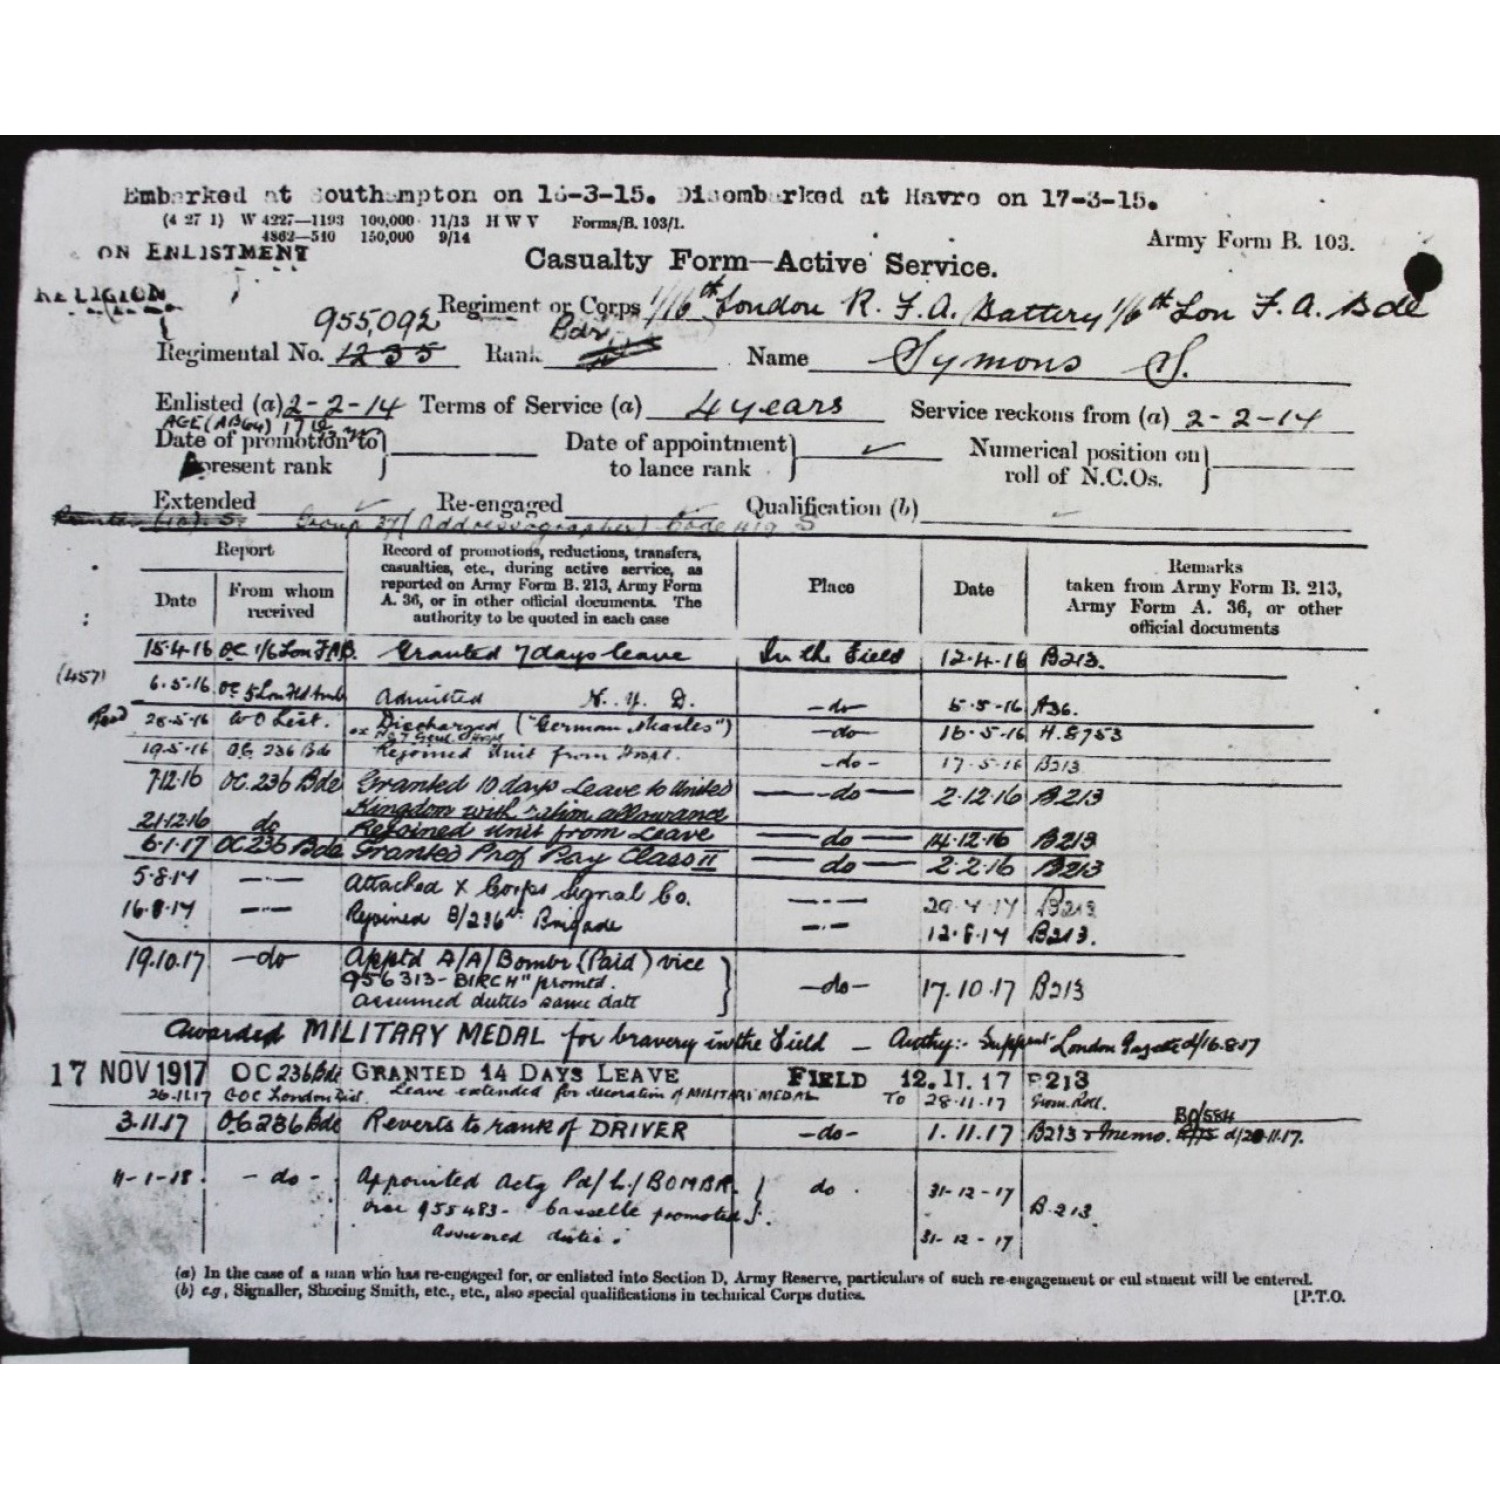 Embarked at Southampton on 16-3-15. Disembarked at Havre on 17-3-15.
(4 27 1) W 4227—1193 100,000 11/13 H W V Forms/B. 103/1.
4862—510 150,000 9/14
Army Form B. 103.
ON ENLISTMENT
Casualty Form—Active Service.
RELIGION
Regiment or Corps 1/6th London R. F. A. Battery 1/6th Lon F. A. Bde
955,092 Bdr
Regimental No. 1235 Rank Name Symons S.
Enlisted (a) 2-2-14 Terms of Service (a) 4 years Service reckons from (a) 2-2-14
AGE (AB64) 17
Date of promotion to present rank Date of appointment to lance rank Numerical position on roll of N.C.Os.
Extended Re-engaged Qualification (b)
Group 37 (Addressographer) Code 419 S
Report
Date From whom received
Record of promotions, reductions, transfers, casualties, etc., during active service, as reported on Army Form B. 213, Army Form A. 36, or in other official documents. The authority to be quoted in each case
Place
Date
Remarks
taken from Army Form B. 213, Army Form A. 36, or other official documents
15.4.16 OC 1/6 Lon F.A.B. Granted 7 days leave In the Field 12.4.16 B213.
(457)
6.5.16 OC 5 Lon Fld Amb Admitted N. Y. D. -do- 5.5.16 A36.
28.5.16 WO List. Discharged ("German Measles") -do- 16.5.16 H.8753
19.5.16 OC 236 Bde Rejoined Unit from Hospl. -do- 17.5.16 B213
7.12.16 OC. 236 Bde Granted 10 days Leave to United -do- 2.12.16 B213
Kingdom with ration allowance
21.12.16 do Rejoined Unit from Leave do 14.12.16 B213
6.1.17 OC 236 Bde Granted Prof Pay Class II do 2.2.16 B213
5.8.17 —"— Attached X Corps Signal Co. —"— 29.4.17 B213
16.8.17 —"— Rejoined B/236th Brigade —"— 12.8.17 B213.
19.10.17 -do- Apptd A/A/Bombr (Paid) vice -do- 17.10.17 B213
956313 - BIRCH" promtd.
assumed duties same date
Awarded MILITARY MEDAL for bravery in the Field - Authy:- Supplt London Gazette d/16.8.17
17 NOV 1917 OC 236 Bde GRANTED 14 DAYS LEAVE FIELD 12.11.17 B213
26.11.17 GOC London Dist. Leave extended for decoration of MILITARY MEDAL To 28.11.17 Nom. Roll.
3.11.17 OC 236 Bde Reverts to rank of DRIVER -do- 1.11.17 B213 & Memo. BO/584 d/28.11.17.
11-1-18 -do- Appointed Actg Pd/L/BOMBR. do. 31-12-17 B.213.
vice 955483 - Casselle promoted
assumed duties 31-12-17
(a) In the case of a man who has re-engaged for, or enlisted into Section D, Army Reserve, particulars of such re-engagement or enlistment will be entered.
(b) e.g., Signaller, Shoeing Smith, etc., etc., also special qualifications in technical Corps duties.
[P.T.O.